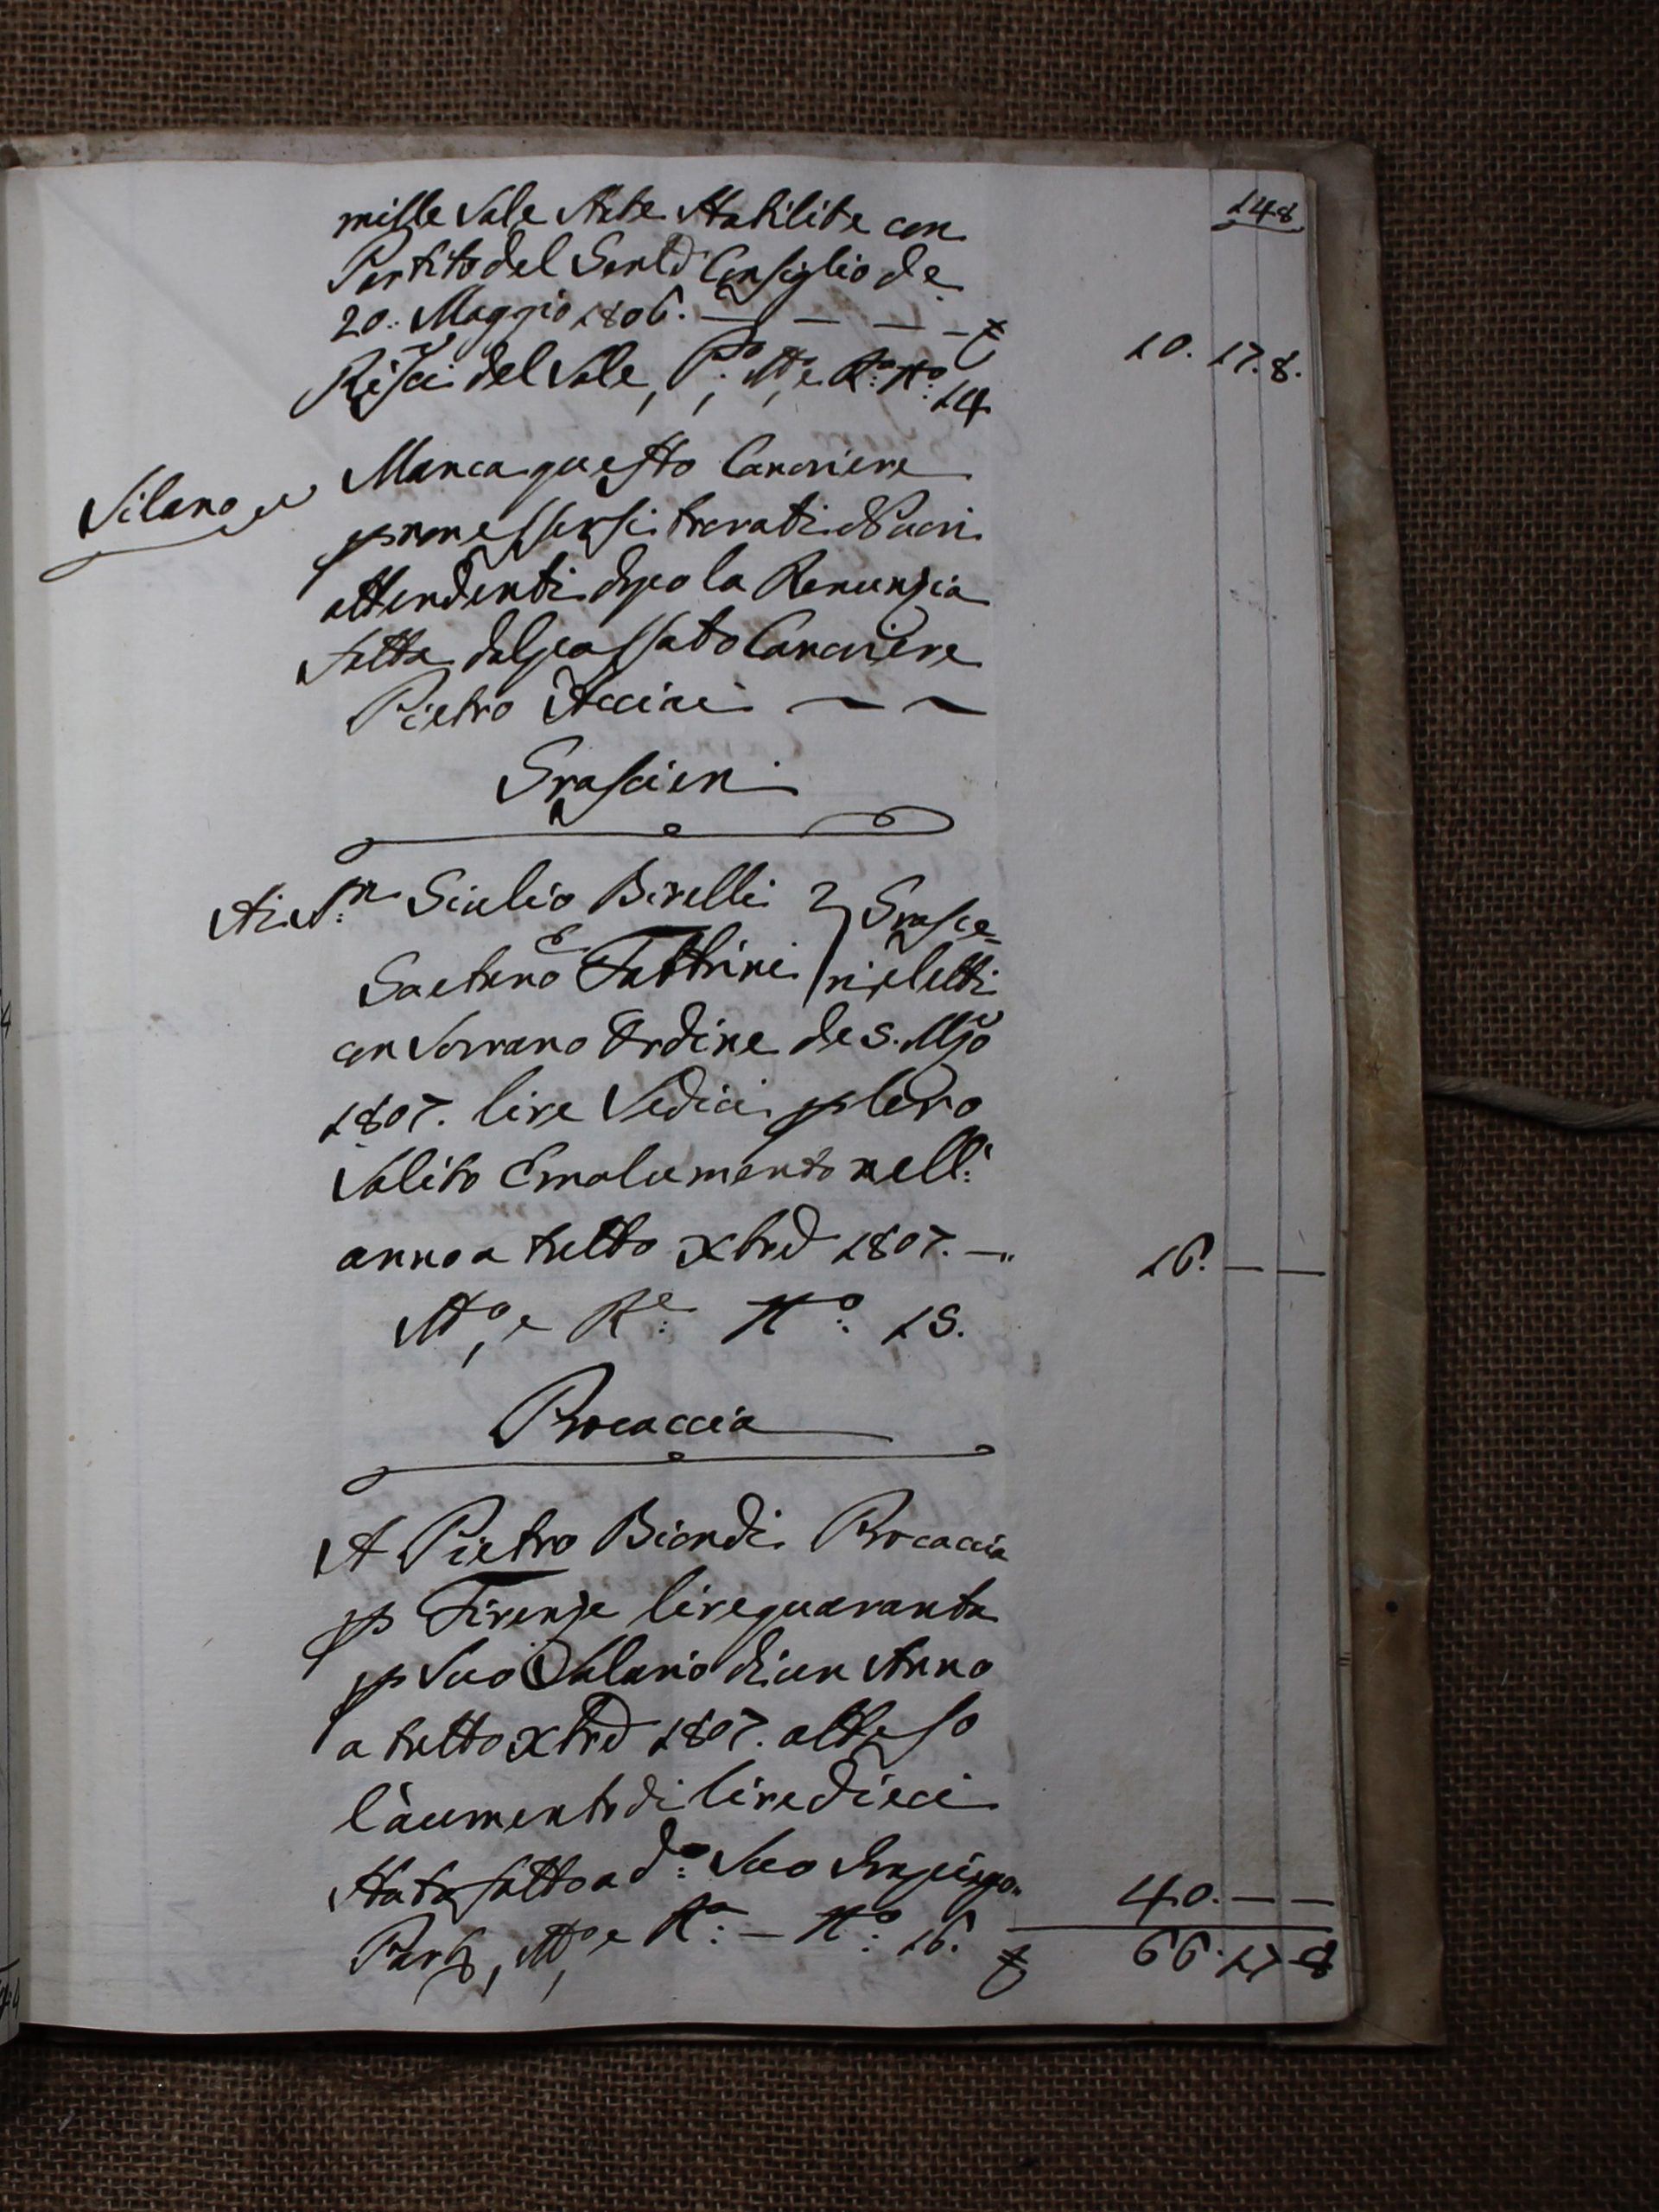 148
mille Sole Nette Stabilite con
Partito del Genle Consiglio de
20. Maggio 1806. — — — — £ 10. 17. 8.
del Sole, P:º, M:º e R:ª Nº: 14
Silano Manca questo Camariere
p non essersi trovati Nuovi
attendenti dopo la Renunzia
fatta dal passato Camariere
Pietro
Grascieri
Ai Sri: Giulio Birelli } Grascie=
E
Gaetano Fattrini } ri eletti
con Sovrano Ordine de 5. Mgo
1807. lire Sedici p loro
Solito Emolumento nell:
anno a tutto Xbre 1807. —" 16. — —
M:º, e R:e Nº: 15.
Procaccia
A Pietro Biondi Procaccia
p Firenze lire quaranta
p Suo Salario di un Anno
a tutto Xbre 1807. atteso
l'aumento di lire dieci
Stato fatto a d:º Suo Impiego" 40. — —
Part:, M:º e R:ª — Nº: 16. £ 66. 17 8